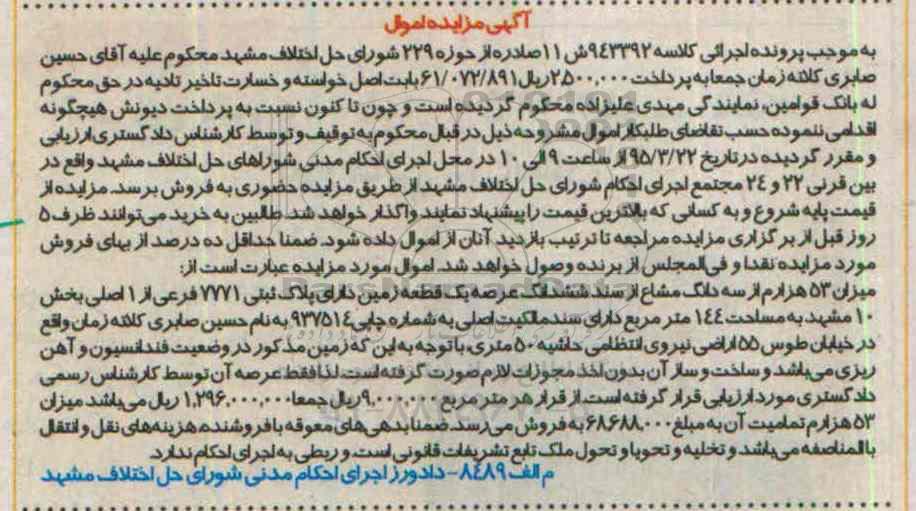 آگهی مزایده اموال
به موجب پرونده اجرائی کلاسه ۹۴۲۳۹۲ش۱۱ صادره از حوزه ۲۲۹ شورای حل اختلاف مشهد محکوم علیه آقای حسین
صابری کلاته زمان جمعا به پرداخت ۲،۵۰۰،۰۰۰ریال ۶۱/۰۷۲/۸۹۱ بابت اصل خواسته و خسارت تاخیر تادیه در حق محکوم
له بانک قوامین، نمایندگی مهدی علیزاده محکوم گردیده است و چون تا کنون نسبت به پرداخت دیونش هیچگونه
اقدامی ننموده حسب تقاضای طلبکار اموال مشروحه ذیل در قبال محکوم به توقیف و توسط کارشناس دادگستری ارزیابی
و مقرر گردیده در تاریخ ۹۵/۳/۲۲ از ساعت ۹ الی ۱۰ در محل اجرای احکام مدنی شوراهای حل اختلاف مشهد واقع در
بین قرنی ۲۲ و ۲۴ مجتمع اجرای احکام شورای حل اختلاف مشهد از طریق مزایده حضوری به فروش برسد. مزایده از
قیمت پایه شروع و به کسانی که بالاترین قیمت را پیشنهاد نمایند واگذار خواهد شد. طالبین به خرید می‌توانند ظرف ۵
روز قبل از برگزاری مزایده مراجعه تا ترتیب بازدید آنان از اموال داده شود. ضمنا حداقل ده درصد از بهای فروش
مورد مزایده نقدا و فی‌المجلس از برنده وصول خواهد شد. اموال مورد مزایده عبارت است از:
میزان ۵۳ هزارم از سه دانگ مشاع از سند ششدانگ عرصه یک قطعه زمین دارای پلاک ثبتی ۷۷۷۱ فرعی از ۱ اصلی بخش
۱۰ مشهد به مساحت ۱۴۴ متر مربع دارای سند مالکیت اصلی به شماره چاپی ۹۳۷۵۱۴ به نام حسین صابری کلاته زمان واقع
در خیابان طوس ۵۵ اراضی نیروی انتظامی حاشیه ۵۰ متری، با توجه به این که زمین مذکور در وضعیت فندانسیون و آهن
ریزی می‌باشد و ساخت و ساز آن بدون اخذ مجوزات لازم صورت گرفته است. لذا فقط عرصه آن توسط کارشناس رسمی
دادگستری مورد ارزیابی قرار گرفته است. از قرار هر متر مربع ۹،۰۰۰،۰۰۰ریال جمعا ۱،۲۹۶،۰۰۰،۰۰۰ ریال می‌باشد میزان
۵۳ هزارم تمامیت آن به مبلغ ۶۸،۶۸۸،۰۰۰ به فروش می‌رسد. ضمنا بدهی‌های معوقه با فروشنده، هزینه‌های نقل و انتقال
بالمناصفه می‌باشد و تخلیه و تحویل و تحول ملک تابع تشریفات قانونی است و ربطی به اجرای احکام ندارد.
م الف ۸۴۸۹- دادورز اجرای احکام مدنی شورای حل اختلاف مشهد